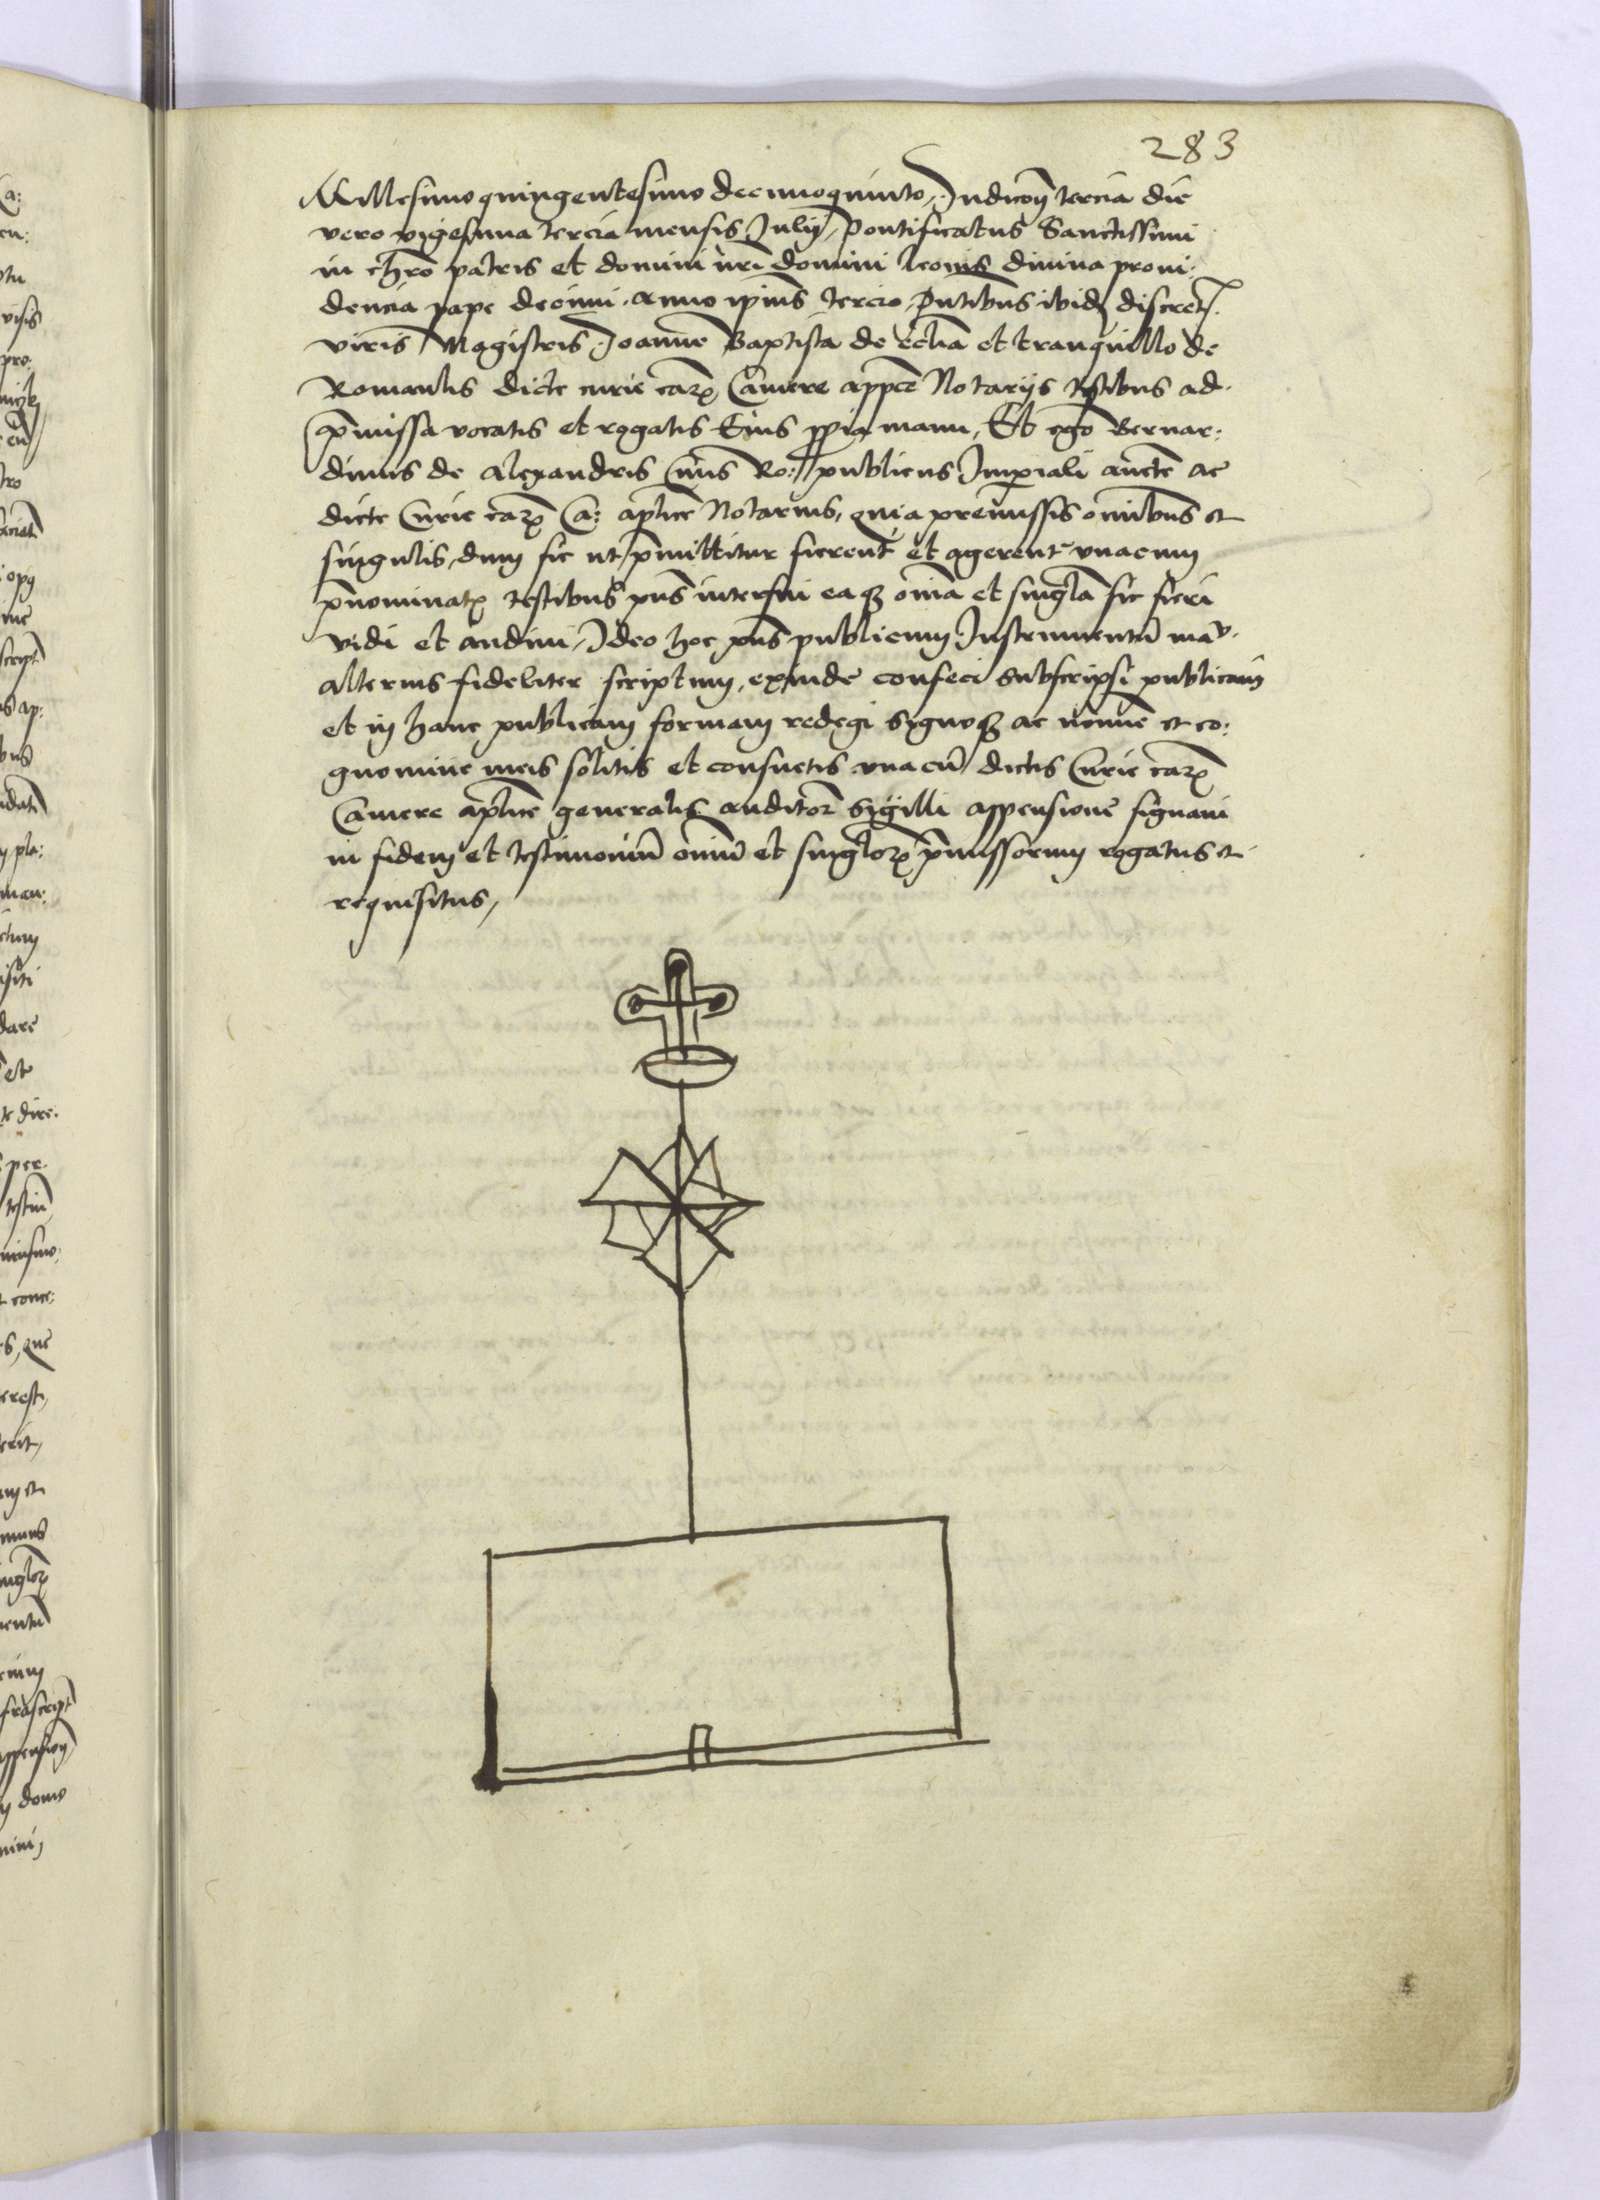 283
Millesimo quingentesimo decimoquinto, Indicōn tercia die
vero vigesima tercia mensis Julij, Pontificatus Sanctissimi
in chrō patris et domini nrī domini leonis divina provi-
dencia pape decimi. anno ipīus tercio, Pntibus ibidē discret.
viris Magistris Joanne Baptista de et tranquillo de
Romaulis dicte curie caz Camere applice Notarijs testibus ad
pmissa vocatis et rogatis Eius ppia manu, Et ego Bernar:
dinus de Alexandris Civis Ro: publicus Imperiali aucte ac
dicte Curie caz Ca: aplice Notarius, quia premissis omibus et
singulis, dum sic ut pmittitur fierent et agerent unacum
pnominatz testibus pns interfui eaqz omia et singla sic fieri
vidi et audivi, Ideo hoc pns publicum Instrumentū manu
alterius fideliter scriptum, exinde confeci subscripsi publicavi
et in hanc publicam formam redegi signoqz ac nomine et co:
gnomine meis solitis et consuetis una cū dictis Curie caz
Camere aplice generalis auditor Sigilli appensione signavi
in fidem et testimoniū omiū et singloz pmissorum rogatus et
requisitus,